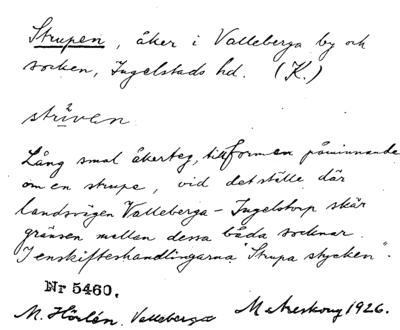 Strupen, åker i Valleberga by och
socken, Ingelstads hd. (K.)
strüven
Lång smal åkerteg, till formen påminnande
om en strupe, vid det ställe där
landsvägen Valleberga - Ingelstorp skär
gränsen mellan dessa båda socknar.
I enskifteshandlingarna "Strupa stycken".
Nr 5460.
M. Hörlén, Valleberga 1926.